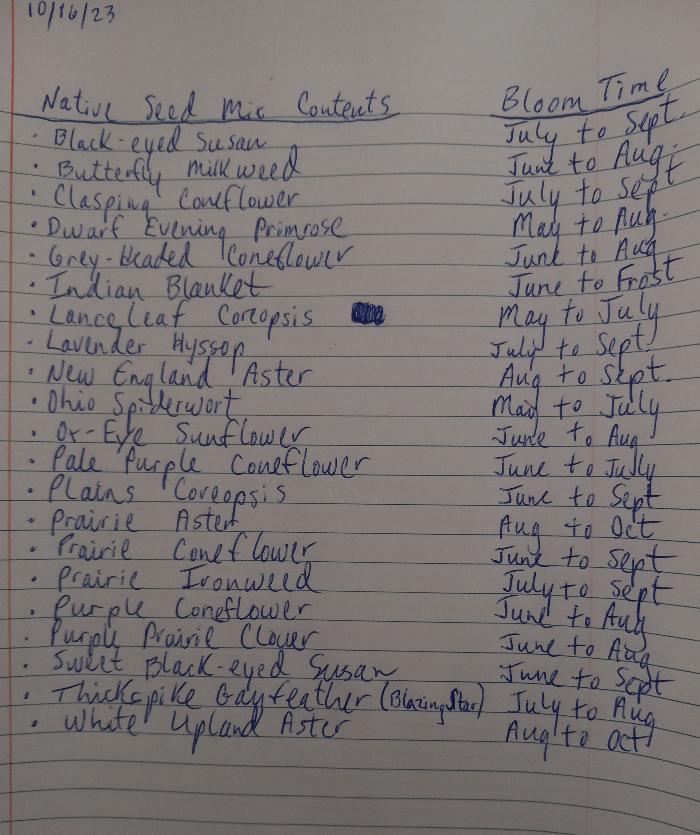 10/16/23
Native Seed Mix Contents Bloom Time
· Black-eyed Susan July to Sept.
· Butterfly Milkweed June to Aug.
· Clasping Coneflower July to Sept
· Dwarf Evening Primrose May to Aug.
· Grey-Headed Coneflower June to Aug
· Indian Blanket June to Frost
· Lance leaf Coreopsis May to July
· Lavender Hyssop July to Sept.
· New England Aster Aug to Sept.
· Ohio Spiderwort May to July
· Ox-Eye Sunflower June to Aug
· Pale Purple Coneflower June to July
· Plains Coreopsis June to Sept
· Prairie Aster Aug to Oct
· Prairie Coneflower June to Sept
· Prairie Ironweed July to Sept
· Purple Coneflower June to Aug
· Purple Prairie Clover June to Aug
· Sweet Black-eyed Susan June to Sept
· Thickspike Gayfeather (Blazing Star) July to Aug
· White Upland Aster Aug to Oct